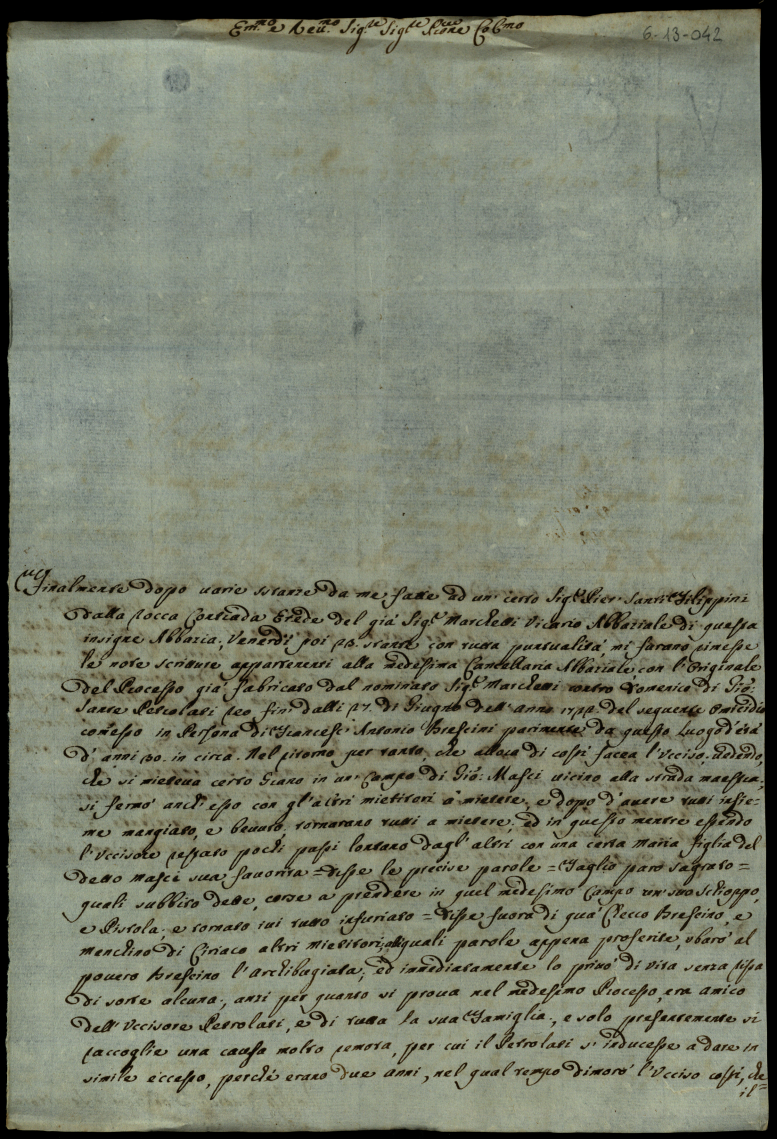 Em.mo e Reu.mo Sig.re Sig.re P'rone Col'mo
6-13-042
Finalmente dopo uarie istanze da me fatte ad un' certo Sig.r Pier' Santi Filippini
dalla Rocca Contrada Erede del già Sig.r Marchetti Vicario Abbaziale di questa
insigne Abbazia; Venerdì poi 23. stante con tutta puntualità mi furano rimesse
le note scritture appartenenti alla medesima Cancellaria Abbaziale con l'Originale
del Processo già fabricato dal nominato Sig.r Marchetti contro Domenico di Gio:
Sante Petrolati reo fin' dalli 27. di Giugno dell' anno del seguente Omicidio
com'esso in Persona di Francesc' Antonio Brescini parimente da questo Luogo d'età
d' anni 30. in circa. Nel ritorno per tanto, che allora di così facea l'Ucciso, uedendo,
che si mieteua certo Grano in un' Campo di Gio: Masci uicino alla strada maestra,
si fermò anch'esso con gl'altri mietitori à mietere, e dopo d'auere tutti insie=
me mangiato, e beuuto, tornarono tutti a mietere; ed in questo mentre essendo
l'Uccisore restato pochi passi lontano dagl' altri con una certa Maria figlia del
detto Masci sua fauorita = disse le precise parole = Taglio paro sagrato =
quali subbito dette, corse a prendere in quel medesimo Campo un' suo schioppo,
e Pistola, e tornato iui tutto infuriato = disse fuora di quà Checco Brescino, e
Menchino di Ciriaco altri mietitori; alle quali parole appena proferite, sbarò al
pouero Brescino l'Archibugiata, ed immediatamente lo priuò di Vita senza rissa
di sorte alcuna, anzi per quanto si proua nel medesimo Processo, era amico
dell' Uccisore Petrolati, e di tutta la sua Famiglia, e solo presentemente si
raccoglie una causa molto remota, per cui il Petrolati s' inducesse a dare in
simile eccesso, perchè erano due anni, nel qual tempo dimorò l'Ucciso così, che
il=